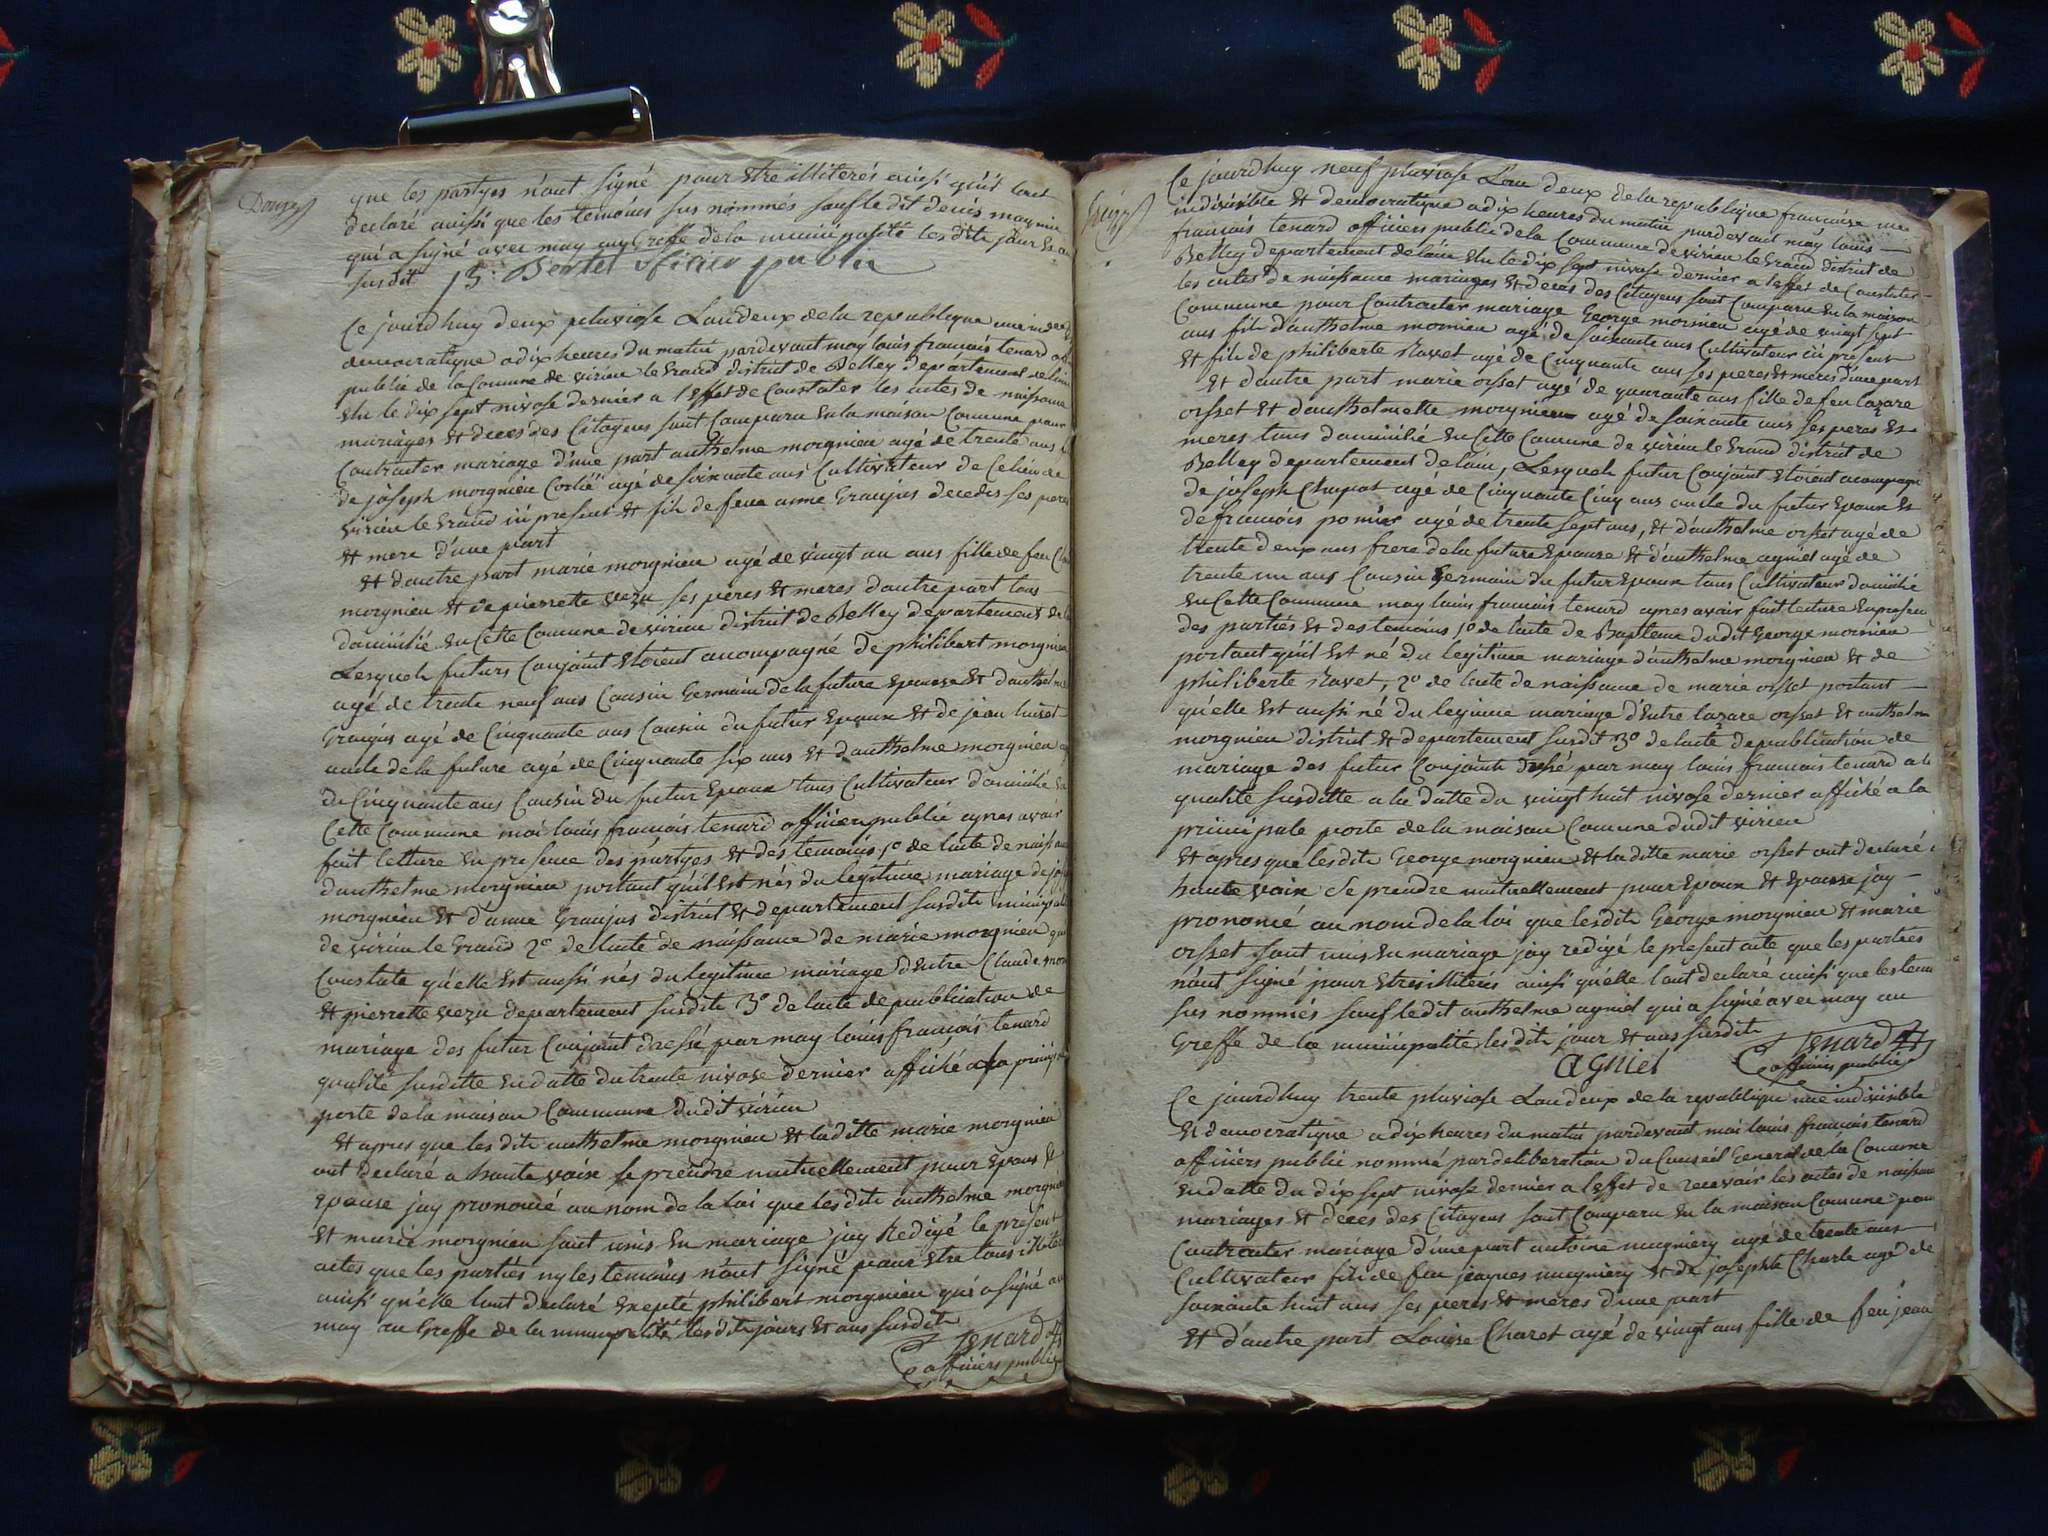 que les partyes n'ont signé pour estre illiterés ainsi qu'ils l'ont
declaré ainsi que les temoins sus nommés sauf le dit denis
qui a signé avec moy au Greffe de la municipalité les dits jour et an
susdit
officier public
Ce jourd'huy deux pluviose L'an deux de la republique une
democratique a dix heures du matin pardevant moy louis françois tenard
public de la Comune de virieu le Grand district de Belley departement de l'ain
elu le dix sept nivose dernier a l'effet de Constater les actes de naissance
mariages et deces des Citoyens sont Comparu en la maison Commune pour
Contracter mariage d'une part anthelme morgnieu agé de trente ans
de joseph morgnieu agé de soixante ans Cultivateur de
virieu le Grand ici present et fils de feue anne Graujas decedes ses peres
et mere d'une part
et d'autre part marie morgnieu agé de vingt un ans fille de feu
morgnieu et de pierrette vezu ses peres et meres d'autre part tous
domicilié en Cette Comune de virieu district de Belley departement de
Lesquels futurs Conjoint etoient acompagné de philibert morgnieu
agé de trente neuf ans Cousin Germain de la future epouse et d'anthelme
Graujas agé de Cinquante ans Cousin du futur Epoux et de jean
oncle de la future agé de Cinquante six ans et d'anthelme morgnieu
de Cinquante ans Cousin du futur Epoux tous Cultivateur domicilié en
Cette Commune moi louis françois tenard officier public apres avoir
fait lecture en presence des partyes et des temoins 1º de l'acte de naissance
d'anthelme morgnieu portant qu'il est nés du legitime mariage de
morgnieu et d'anne Graujas district et departement susdits
de virieu le Grand 2º de l'acte de naissance de marie morgnieu qui
Constate qu'elle est aussi nés du legitime mariage d'entre Claude
et pierrette vezu departement susdits 3º de l'acte de publication de
mariage des futur Conjoint dressé par moy louis françois tenard
qualité susditte en datte du trente nivose dernier affiché a la
porte de la maison Commune dudit virieu
et apres que les dits anthelme morgnieu et laditte marie morgnieu
ont declaré a haute voix se prendre mutuellement pour Epoux et
epouse jay prononcé au nom de la loi que lesdits anthelme
et marie morgnieu sont unis en mariage jay Redigé le present
actes que les parties ny les temoins n'ont signé pour estre tous
ainsi qu'elle l'ont declaré Exepté philibert morgnieu qui a signé
moy au Greffe de la municipalité les dits jours et ans susdits
Tenard
officiers public
Ce jourd'huy neuf pluviose L'an deux de la republique francaise
indivisible et democratique a dix heures du matin pardevant moy louis
françois tenard officiers public de la Commune de virieu le Grand district de
Belley departement de l'ain elu le dix sept nivose dernier a l'effet de Constater
les actes de naissance mariages et deces des Citoyens sont Comparu en la maison
Commune pour Contracter mariage George morgnieu agé de vingt sept
ans fils d'anthelme morgnieu agé de soixante ans Cultivateur ici present
et fils de philiberte Ravet agé de Cinquante ans ses peres et meres d'une part
et d'autre part marie orsset agé de quarante ans fille de feu lazare
orsset et d'anthelmette morgnieu agé de soixante ans ses peres et
meres tous domicilié en Cette Comune de virieu le Grand district de
Belley departement de l'ain, Lesquels futur Conjoint etoient acompagné
de joseph agé de Cinquante Cinq ans oncle du futur Epoux et
de françois agé de trente sept ans, et d'anthelme orsset agé de
trente deux ans frere de la future Epouse et d'anthelme agniel agé de
trente un ans Cousin Germain du futur Epoux tous Cultivateur domicilié
en Cette Commune moy louis françois tenard apres avoir fait lecture
des parties et des temoins 1º de l'acte de Bapteme dudit George morgnieu
portant qu'il est né du legitime mariage d'anthelme morgnieu et de
philiberte Ravet, 2º de l'acte de naissance de marie orsset portant
qu'elle est aussi né du legitime mariage d'entre lazare orsset et
morgnieu district et departement susdit 3º de l'acte de publication de
mariage des futur Conjoints dressé par moy louis françois tenard a la
qualité susditte a la datte du vingt huit nivose dernier affiché a la
principale porte de la maison Comune dudit virieu
et apres que lesdits George morgnieu et laditte marie orsset ont declaré
haute voix se prendre mutuellement pour Epoux et Epouse jay
prononcé au nom de la loi que lesdits George morgnieu et marie
orsset sont unis en mariage jay redigé le present acte que les parties
n'ont signé pour estre illiterés ainsi qu'elle l'ont declaré ainsi que les
sus nommés sauf ledit anthelme agniel qui a signé avec moy au
Greffe de la municipalité les dits jour et ans susdits
agniel
Tenard
officiers public
Ce jourd'huy trente pluviose L'an deux de la republique une indivisible
et democratique a dix heures du matin pardevant moi louis françois tenard
officiers public nommé par deliberation du Conseil General de la Comune
en datte du dix sept nivose dernier a l'effet de recevoir les actes de naissance
mariages et deces des Citoyens sont Comparu en la maison Comune pour
Contracter mariage d'une part antoine mugniery agé de trente ans
Cultivateur fils de feu jacques mugniery et de josephte Charle agé de
soixante huit ans ses peres et meres d'une part
et d'autre part Louise Charet agé de vingt ans fille de feu jean